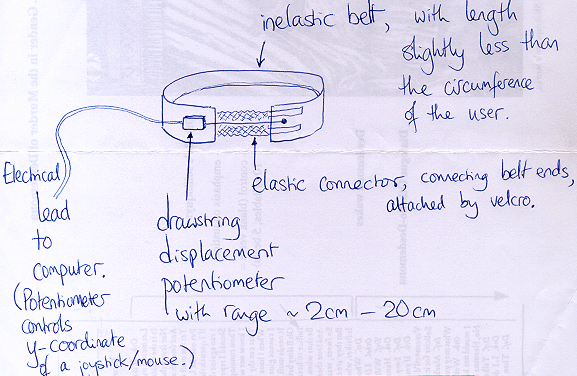 inelastic belt, with length
slightly less than
the circumference
of the user.
elastic connector, connecting belt ends,
attached by velcro.
Electrical
lead
to
computer.
(Potentiometer
controls
y-coordinate
of a joystick/mouse.)
drawstring
displacement
potentiometer
with range ~ 2cm – 20cm